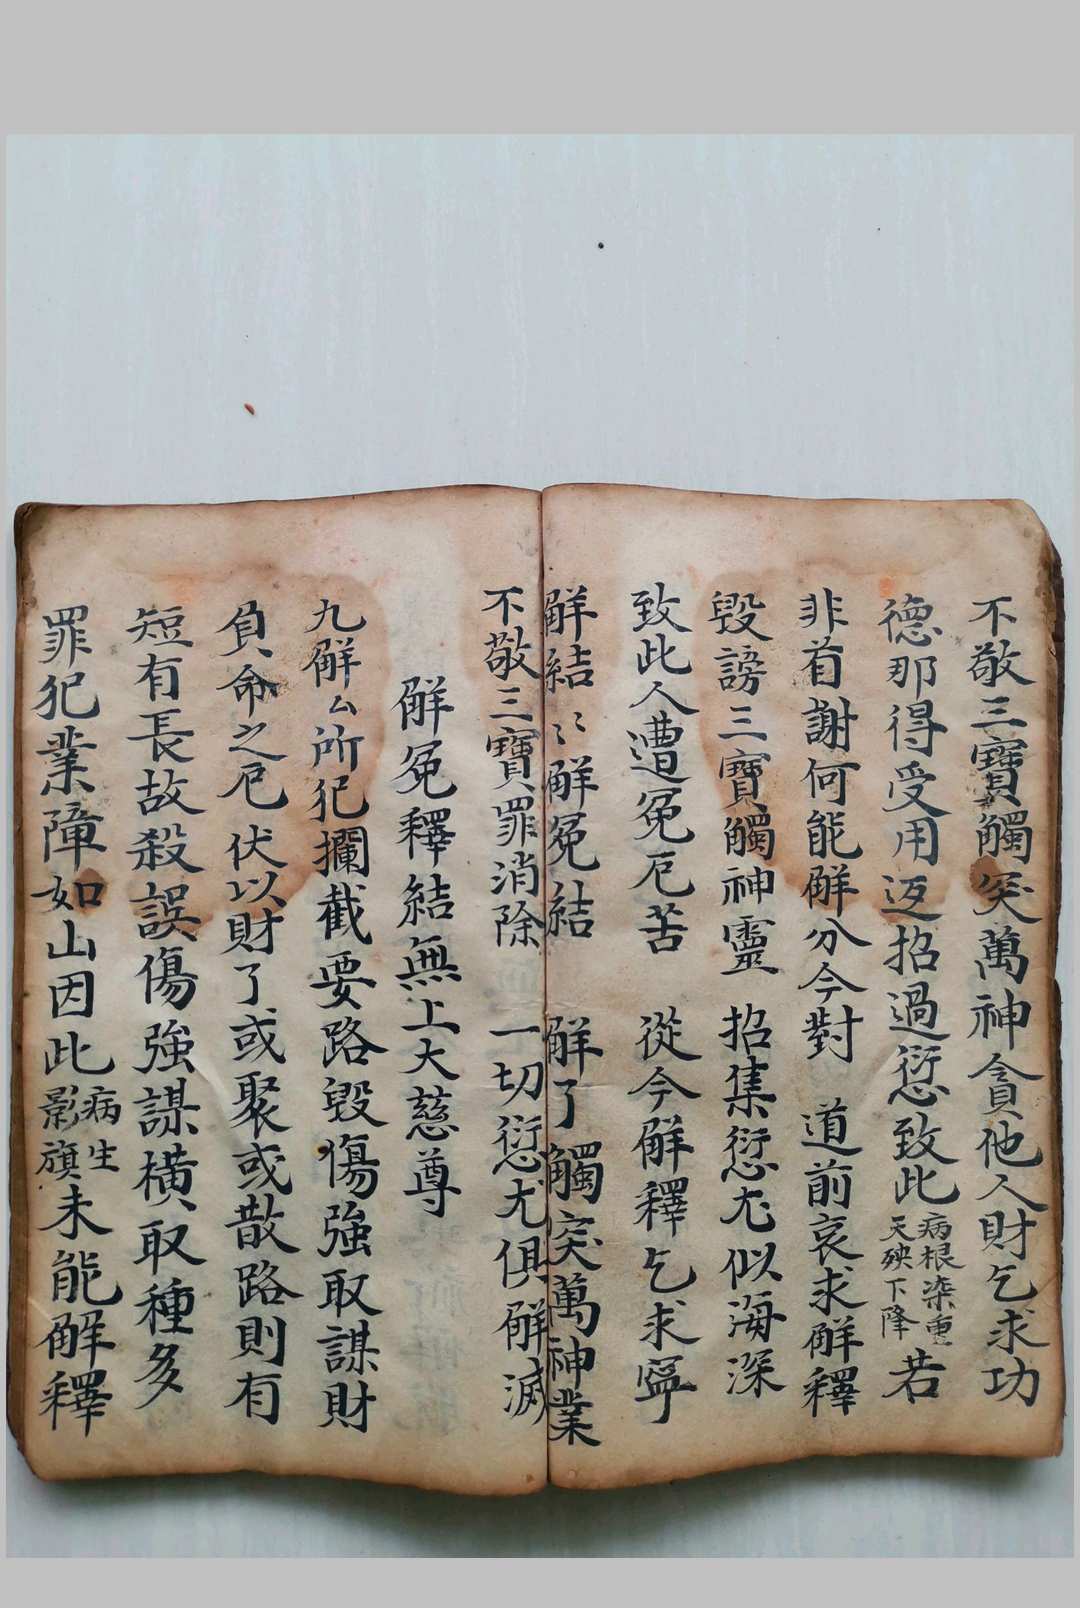 不敬三寶觸突萬神貪他人財乞求功
德那得受用返招過愆致此病根染重天殃下降若
非首謝何能解分今對 道前哀求解釋
毀謗三寶觸神靈 招集愆尤似海深
致此人遭冤厄苦 從今解釋乞求寧
解結〻解冤結 解了觸突萬神業
不敬三寶罪消除 一切愆尤俱解滅
解冤釋結無上大慈尊
九解厶所犯攔截要路毀傷強取謀財
負命之厄伏以財了或聚或散路則有
短有長故殺誤傷強謀橫取種多
罪犯業障如山因此病生影旗未能解釋